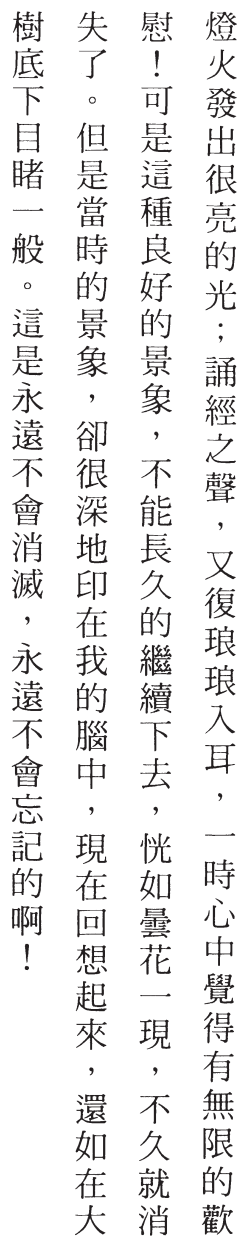 燈火發出很亮的光；誦經之聲，又復琅琅入耳，一時心中覺得有無限的歡
慰！可是這種良好的景象，不能長久的繼續下去，恍如曇花一現，不久就消
失了。但是當時的景象，卻很深地印在我的腦中，現在回想起來，還如在大
樹底下目睹一般。這是永遠不會消滅，永遠不會忘記的啊！